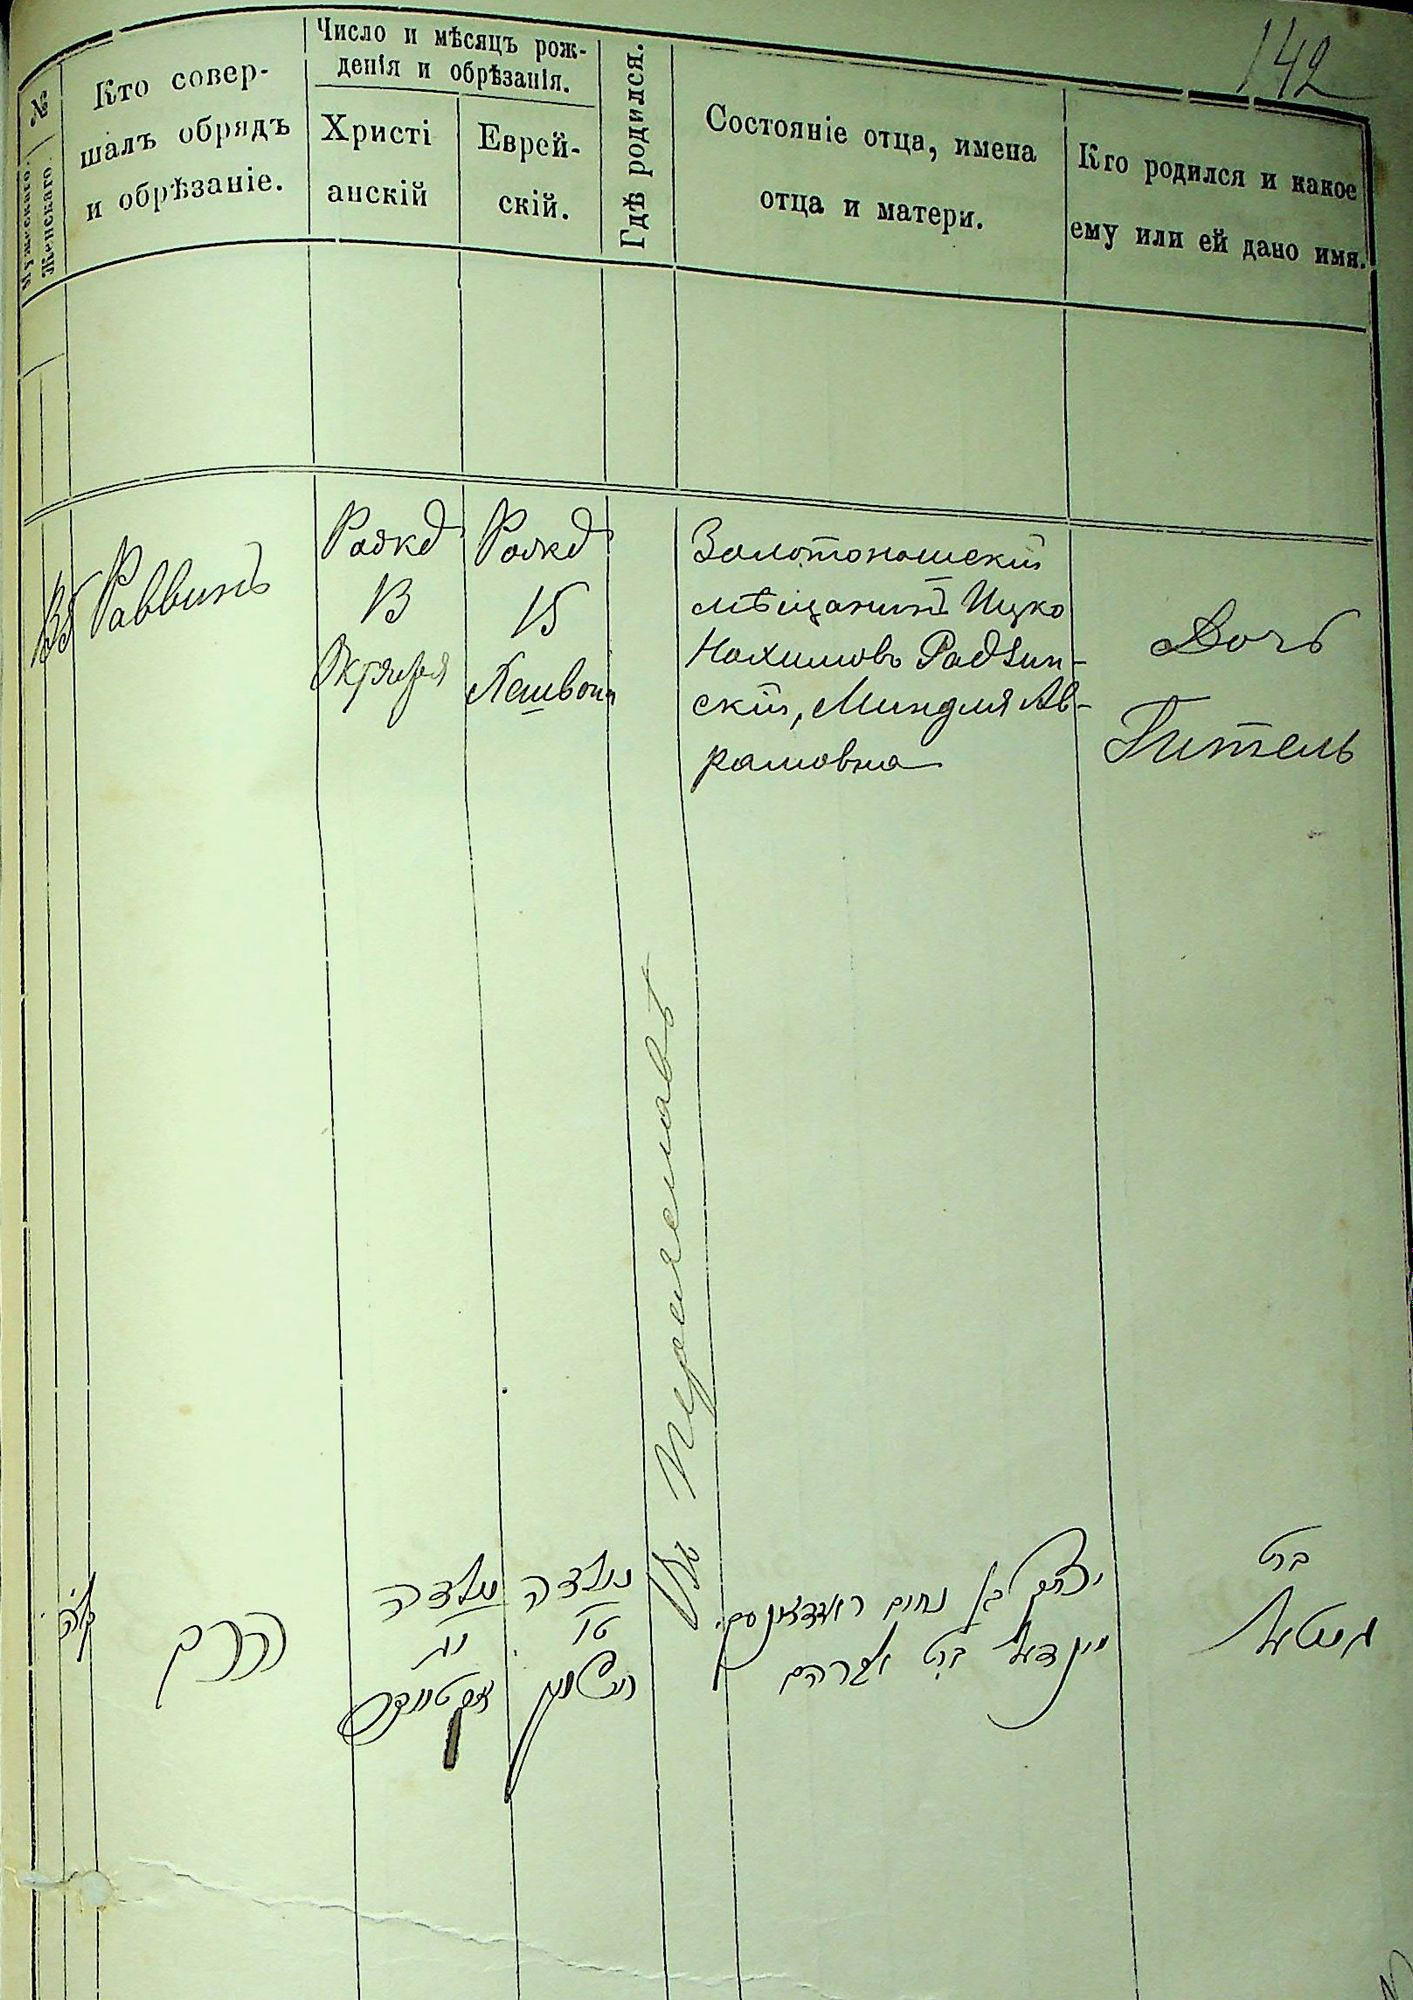 142
№
Мужескаго.
Женскаго.
Кто совер-
шалъ обрядъ
и обрѣзаніе.
Число и мѣсяцъ рож-
денія и обрѣзанія.
Христі
анскій
Еврей-
скій.
Гдѣ родился.
Состояніе отца, имена
отца и матери.
Кто родился и какое
ему или ей дано имя.
135
Раввинъ
13
Октября
15
Хешвонъ
Въ Переяславѣ
Золотоношскій
мѣщанинъ Ицко
Нохимовъ Радзин-
скій, Миндля Ав-
рамовна
Дочь
Гитель
קלה
הרב
נולדה
יג
אקטובר
נולדה
טו
חשון
יצחק בן נחום ראדזינסקי
מינדל בת אברהם
בת
גיטל